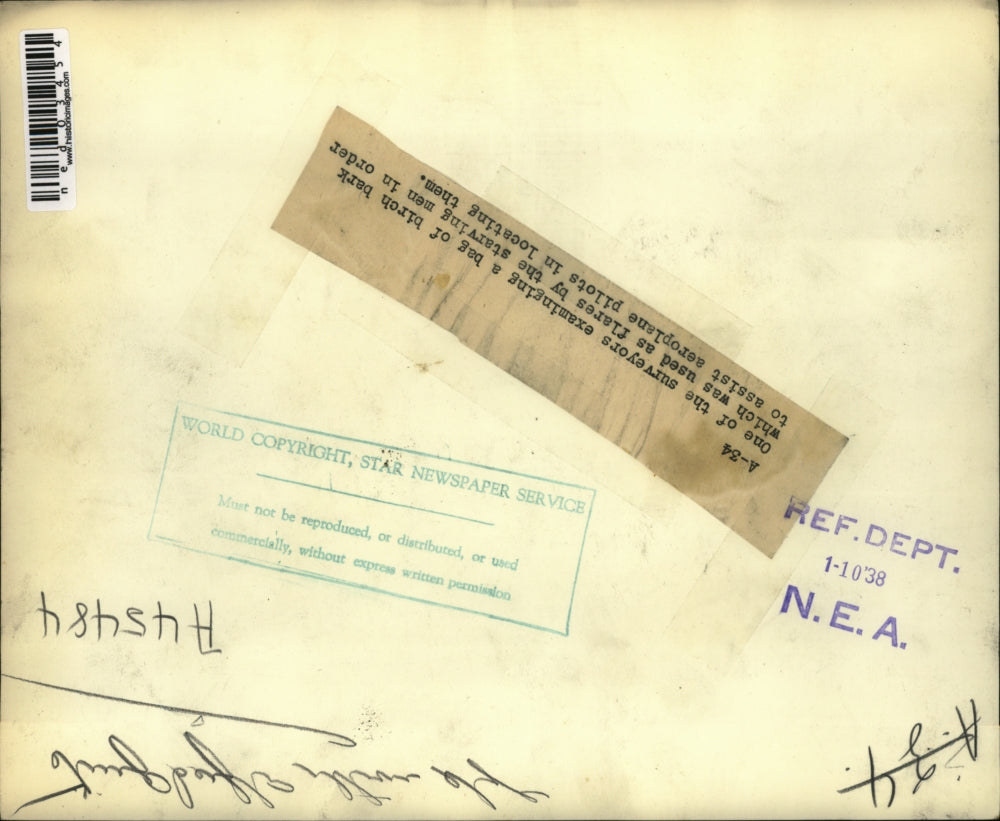 ned03454
www.historicimages.com
A-34
One of the surveyors examinging a bag of birch bark
which was used as flares by the starving men in order
to assist aeroplane pilots in locating them.
WORLD COPYRIGHT, STAR NEWSPAPER SERVICE
Must not be reproduced, or distributed, or used
commercially, without express written permission
REF. DEPT.
1-10'38
N. E. A.
A45484
with